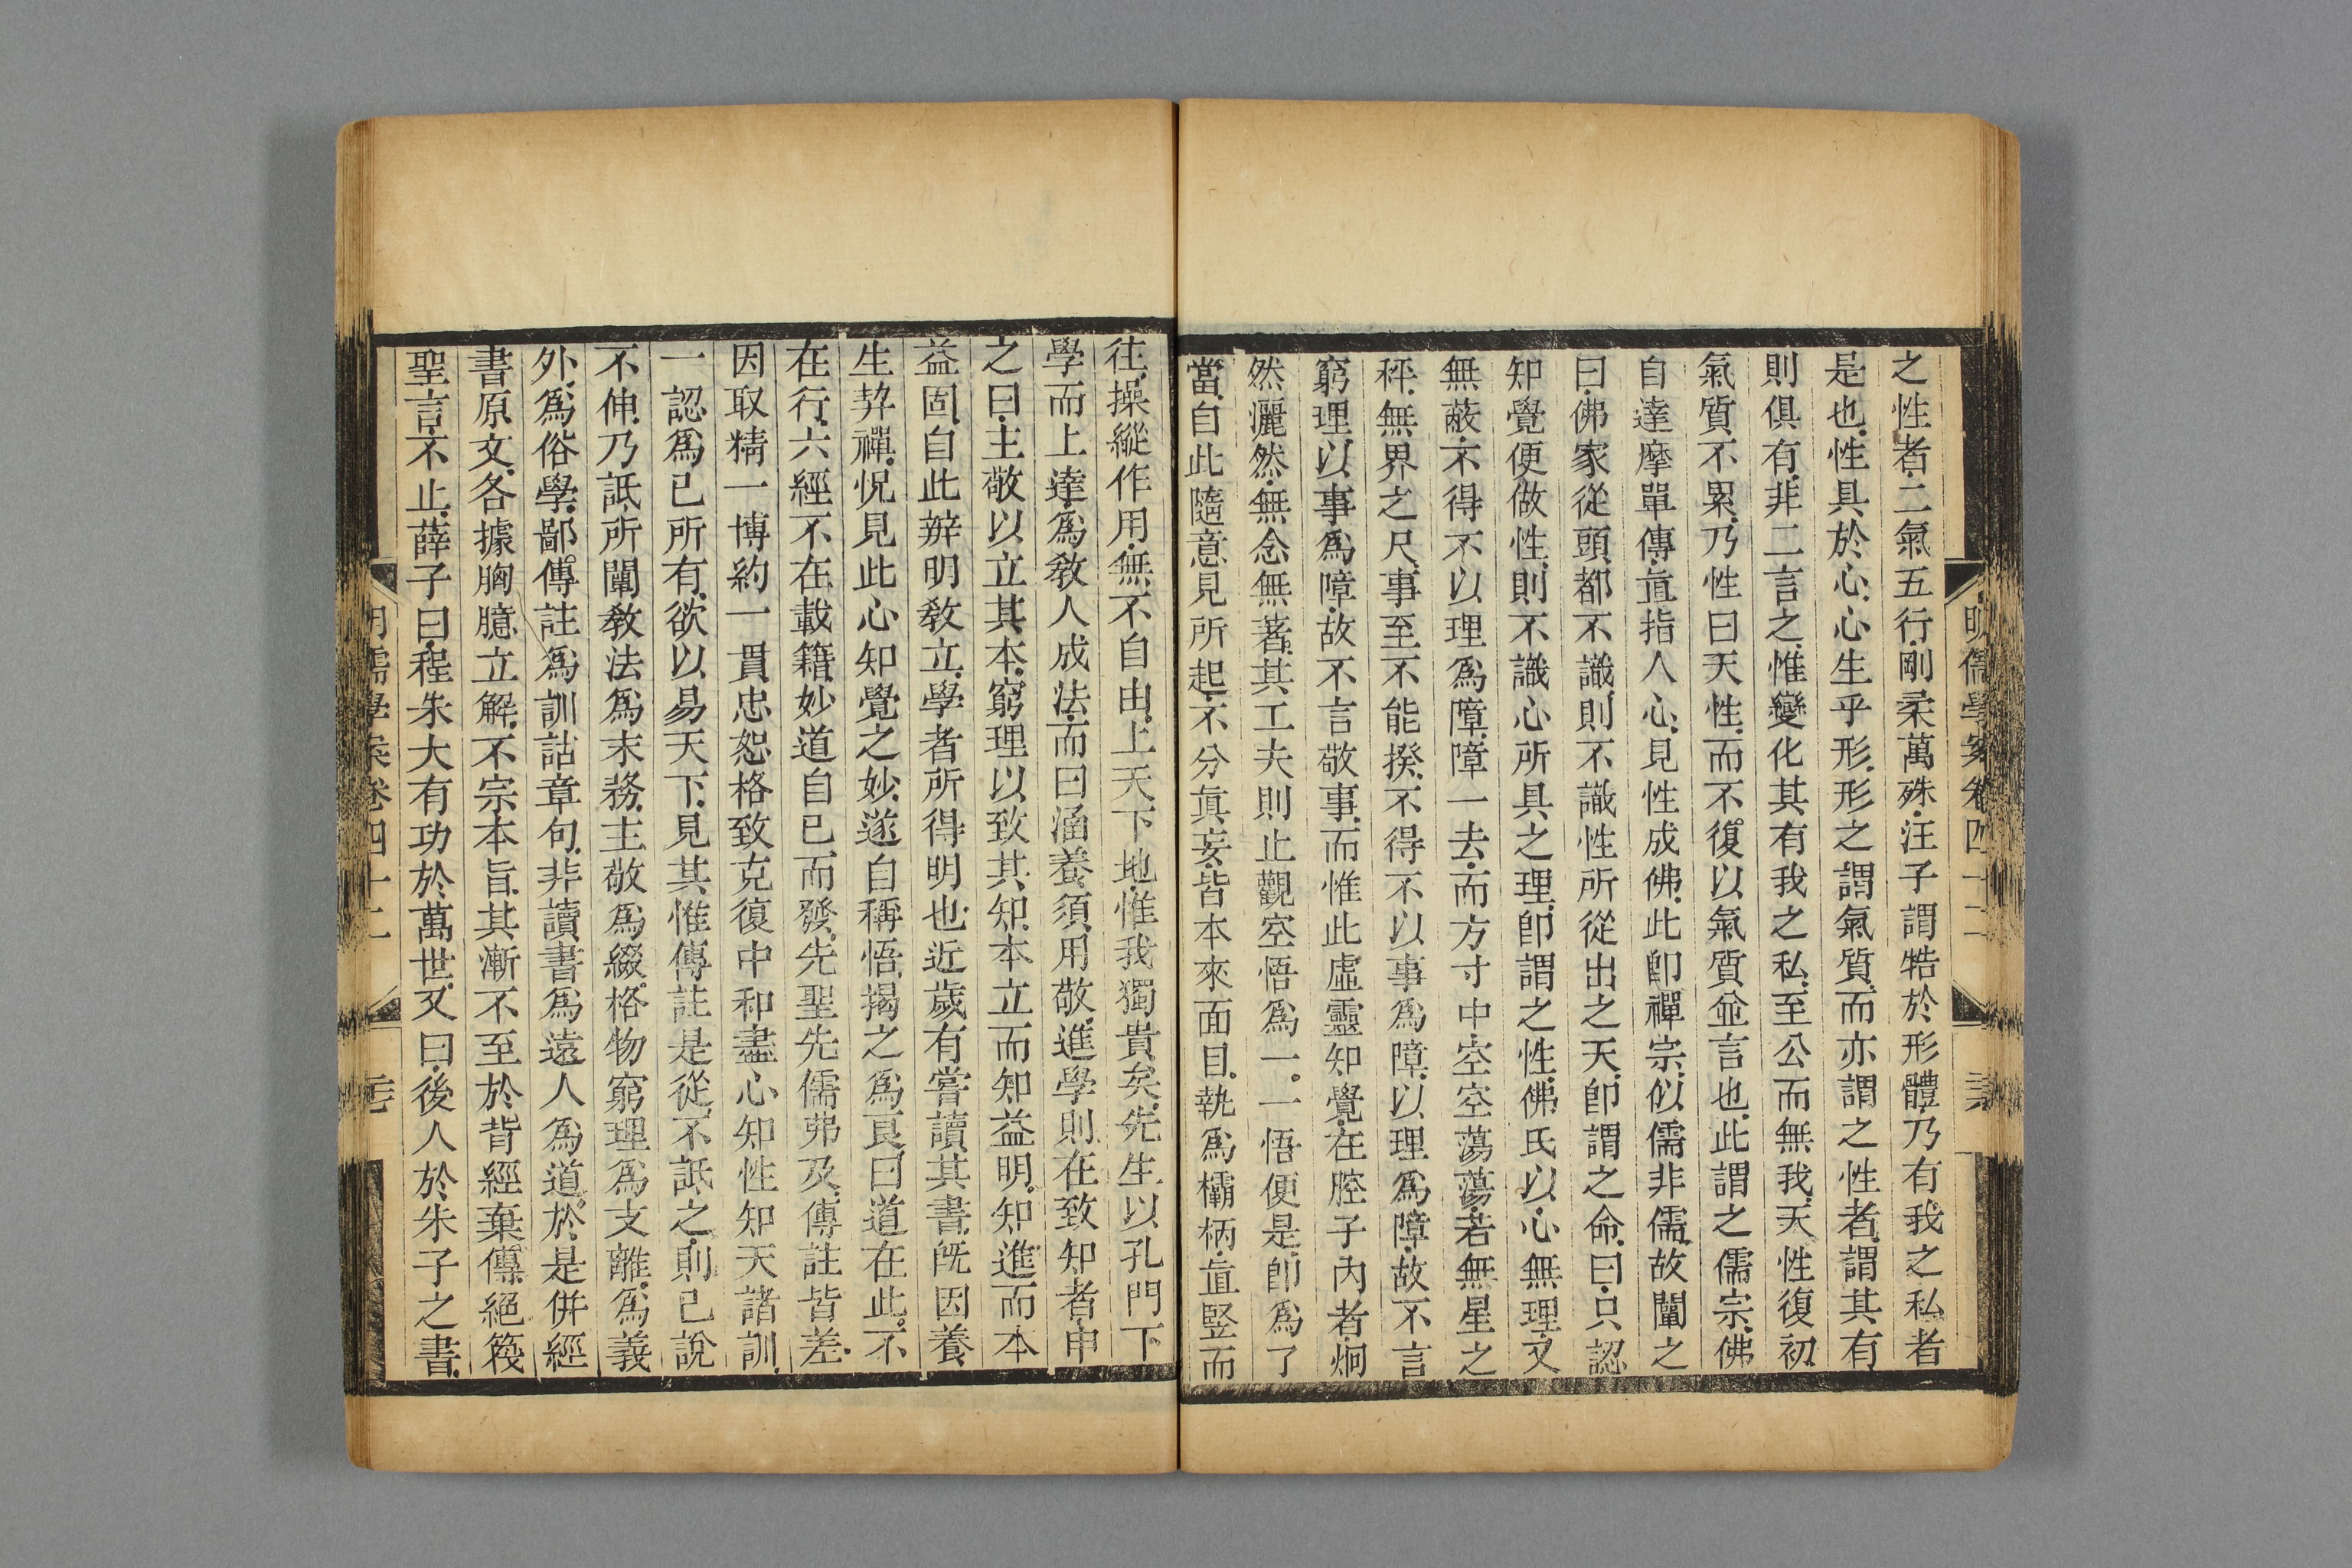 明儒學案卷四十二
之性者二氣五行剛柔萬殊汪子謂牿於形體乃有我之私者
是也性具於心心生乎形形之謂氣質而亦謂之性者謂其有
則俱有非二言之惟變化其有我之私至公而無我天性復初
氣質不累乃性曰天性而不復以氣質並言也此謂之儒宗佛
自達摩單傳直指人心見性成佛此卽禪宗似儒非儒故闡之
曰佛家從頭都不識則不識性所從出之天卽謂之命曰只認
知覺便做性則不識心所具之理卽謂之性佛氏以心無理文
無蔽不得不以理爲障障一去而方寸中空空蕩蕩若無星之
秤無界之尺事至不能揆不得不以事爲障以理爲障故不言
窮理以事爲障故不言敬事而惟此虛靈知覺在腔子內者炯
然灑然無念無著其工夫則止觀空悟爲一一悟便是卽爲了
當自此隨意見所起不分眞妄皆本來面目執爲欛柄直竪而
往操縱作用無不自由上天下地惟我獨貴矣先生以孔門下
學而上達爲敎人成法而曰涵養須用敬進學則在致知者申
之曰主敬以立其本窮理以致其知本立而知益明知進而本
益固自此辨明敎立學者所得明也近歲有嘗讀其書旣因養
生契禪怳見此心知覺之妙遂自稱悟揭之爲良曰道在此不
在行六經不在載籍妙道自已而發先聖先儒弗及傳註皆差
因取精一博約一貫忠恕格致克復中和盡心知性知天諸訓
一認爲已所有欲以易天下見其惟傳註是從不詆之則已說
不伸乃詆所闡敎法爲末務主敬爲綴格物窮理爲支離爲義
外爲俗學鄙傳註爲訓詁章句非讀書爲遠人爲道於是倂經
書原文各據胸臆立解不宗本旨其漸不至於背經棄傳絕筏
聖言不止薛子曰程朱大有功於萬世又曰後人於朱子之書
明儒學案卷四十二